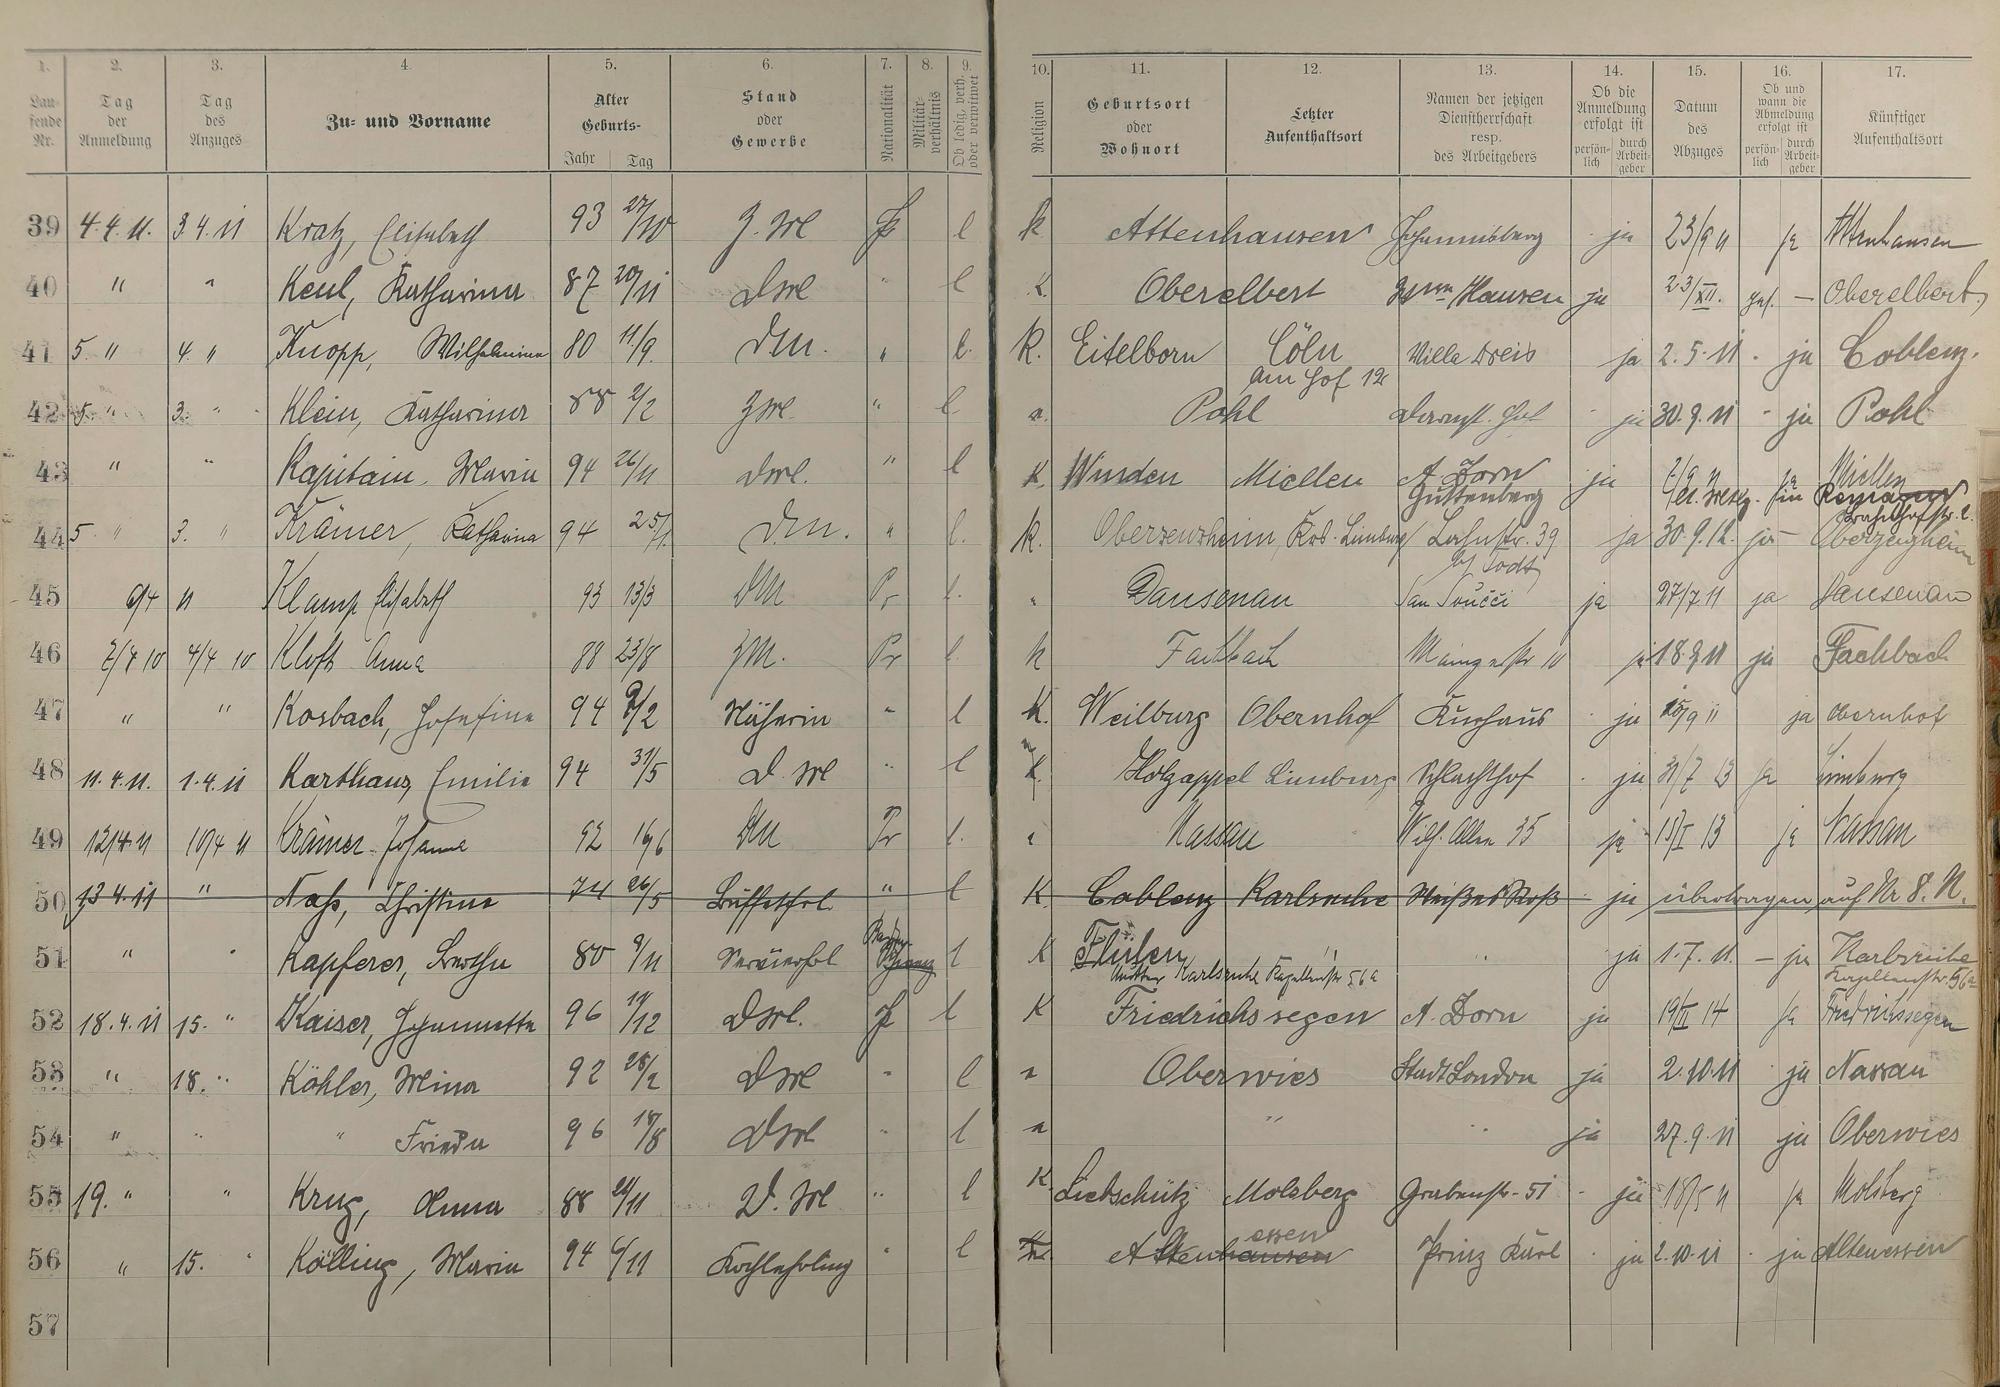 1. 2. 3. 4. 5. 6. 7. 8. 9. 10. 11. 12. 13. 14. 15. 16. 17.
Laufende Nr. | Tag der Anmeldung | Tag des Anzuges | Zu- und Vorname | Alter Geburts- Jahr Tag | Stand oder Gewerbe | Nationalität | Militärverhältnis | Ob ledig, verh. oder verwitwet | Religion | Geburtsort oder Wohnort | Letzter Aufenthaltsort | Namen der jetzigen Dienstherrschaft resp. des Arbeitgebers | Ob die Anmeldung erfolgt ist persönlich durch Arbeitgeber | Datum des Abzuges | Ob und wann die Abmeldung erfolgt ist persönlich durch Arbeitgeber | Künftiger Aufenthaltsort
39 4.4.11. 3.4.11 Kratz, Elisabeth 93 27/10 Z. Ml l k Attenhausen Johannisberg ja 23/9 11 ja Attenhausen
40 " " Keul, Katharina 87 20/11 DMl " l K. Oberelbert Hausen ja 23/XII. — Oberelbert
41 5. " 4. " Knopp, Wilhelmine 80 11/9. Dm. " l. K. Eitelborn Cöln Villa Dreis ja 2.5.11. ja Coblenz.
am Hof 12
42 5. " 3. " Klein, Katharina 88 2/2 ZMl " l Pohl Darmst. Hof ja 30.9.11 ja Pohl
43 " " Kapitain, Maria 94 26/11 DMl. " l K. Winden Miellen A. Dorn ja ja Miellen
Guttenberg
44 5 " 3. " Krämer, Katharina 94 25/1. D.M. " l. K. Lahnstr. 39 ja 30.9.12. ja
bei Todt
45 6/4 11 Klamp Elisabeth 93 13/3 DM Pr l. " Dausenau San Soucci ja 27/7 11 ja Dausenau
46 7/4 10 4/4 10 Kloft Anna 88 23/8 ZM. Pr l. k Fachbach Mainzerstr 10 ja 18.9 11 ja Fachbach
47 " " Kosbach, Josefine 94 2/2 Näherin " l K. Weilburg Obernhof Kurhaus ja 15/9 11 ja Obernhof
48 11.4.11. 1.4.11 Karthaus, Emilie 94 31/5 D. Ml " l K. Holzappel Limburg Schlachthof ja 31/7 13 ja Limburg
49 12/4 11 10/4 11 Krämer Johanna 92 16/6 DM Pr l. " Nassau Wilh. Allee 35 ja 15/I 13 ja Nassau
50 13.4.11 " Nass, Christine 74 26/5 Buffetfrl. " l K Coblenz Karlsruhe Weißes Roß ja übertragen auf Nr 8. N.
51 " " Kapferer, Bertha 80 9/11 Servierfrl l K Flülen " " ja 1.7.11. — ja Karlsruhe
Mutter Karlsruhe Kapellenstr 56a Kapellenstr. 56a
52 18.4.11 15. " Kaiser, Johannetta 96 19/12 DMl. Pr l K Friedrichssegen A. Dorn ja 19/II 14 ja Friedrichssegen
53 " 18. " Köhler, Mina 92 28/2 DMl " l " Oberwies Stadt London ja 2.10.11 ja Nassau
54 " " " Frieda 96 18/8 DMl " l " " " ja 27.9.11 ja Oberwies
55 19. " " Krug, Anna 88 24/11 D. Ml " l K. Liebschütz Molsberg Grabenstr. 51 ja 18/5 11 ja Molsberg
56 " 15. " Kölling, Maria 94 6/11 Kochlehrling " l Altenhausen essen Prinz Karl ja 2.10.11 ja Altenessen
57